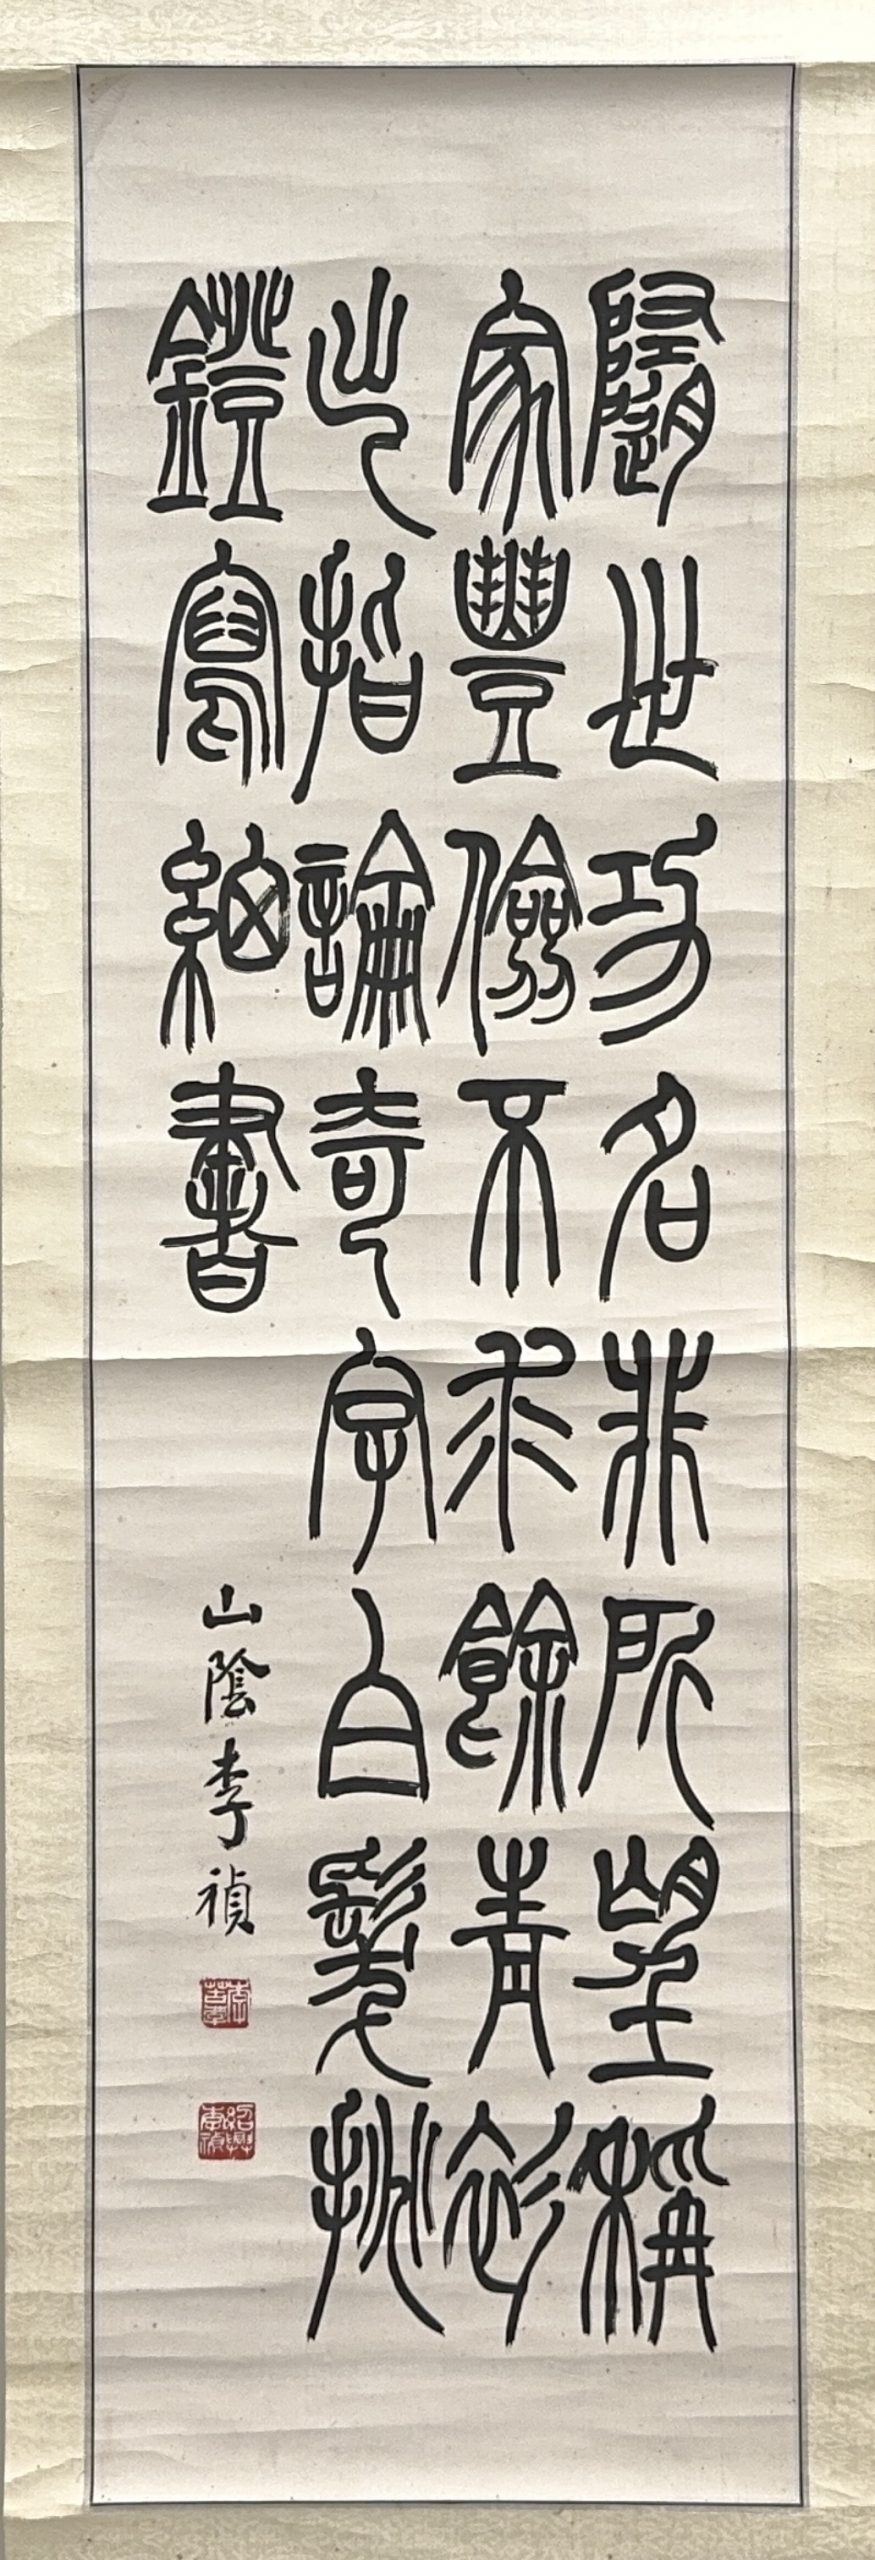 隨世功名非所望稱
家豐儉不求餘青衫
指論奇字白髮挑
鐙寫細書
山陰李禎
紹興李禎